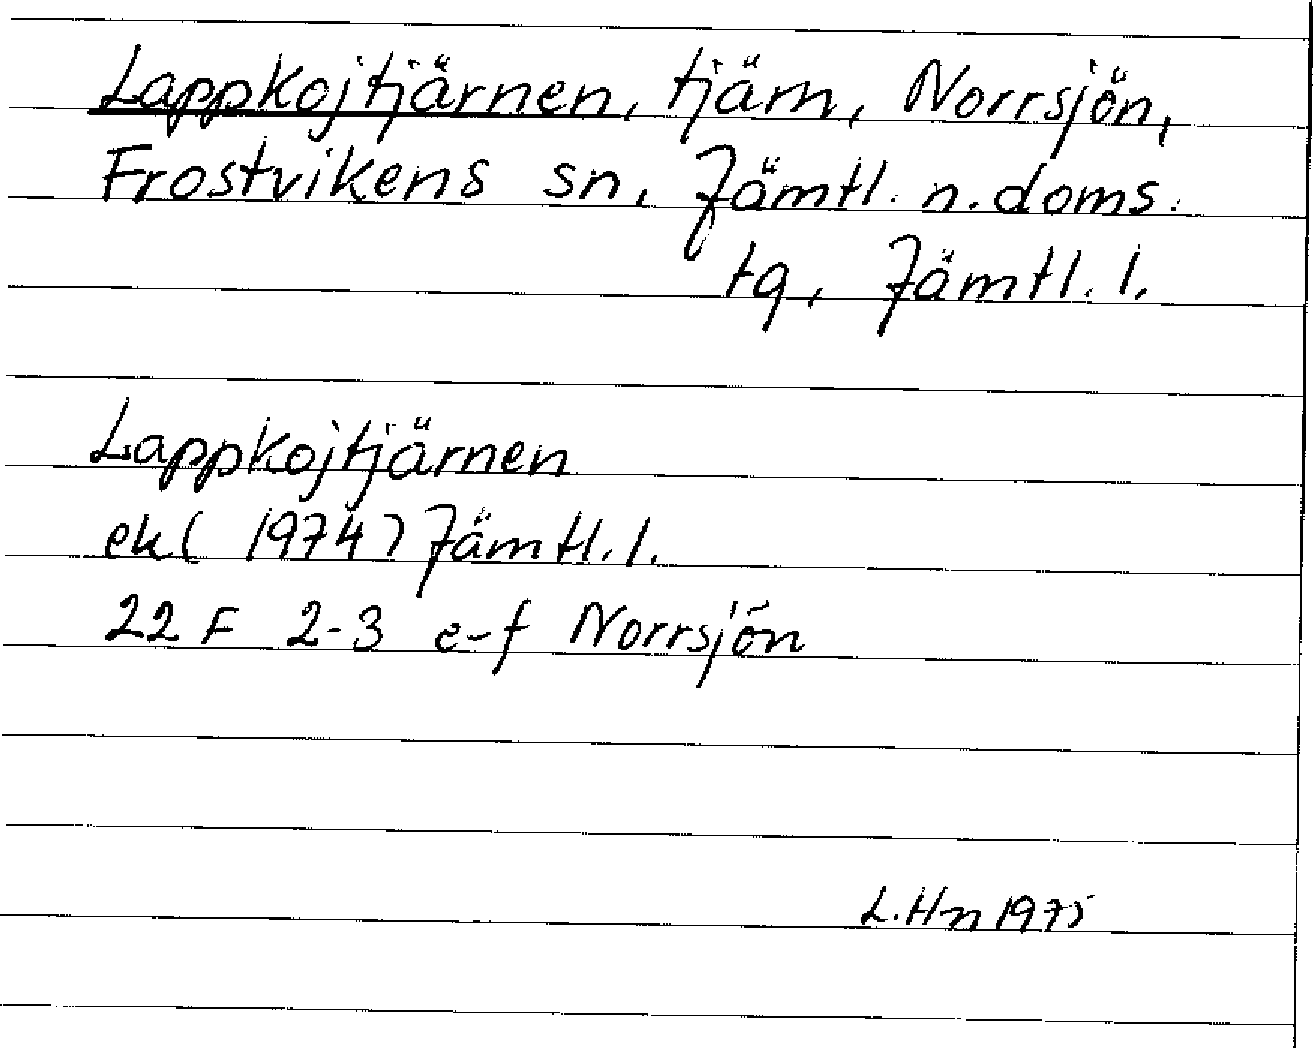 Lappkojtjärnen, tjärn, Norrsjön,
Frostvikens sn, Jämtl. n. doms.
tg, Jämtl. l.
Lappkojtjärnen
ek (1974) Jämtl. l.
22 F 2-3 e-f Norrsjön
L. Hn 1975